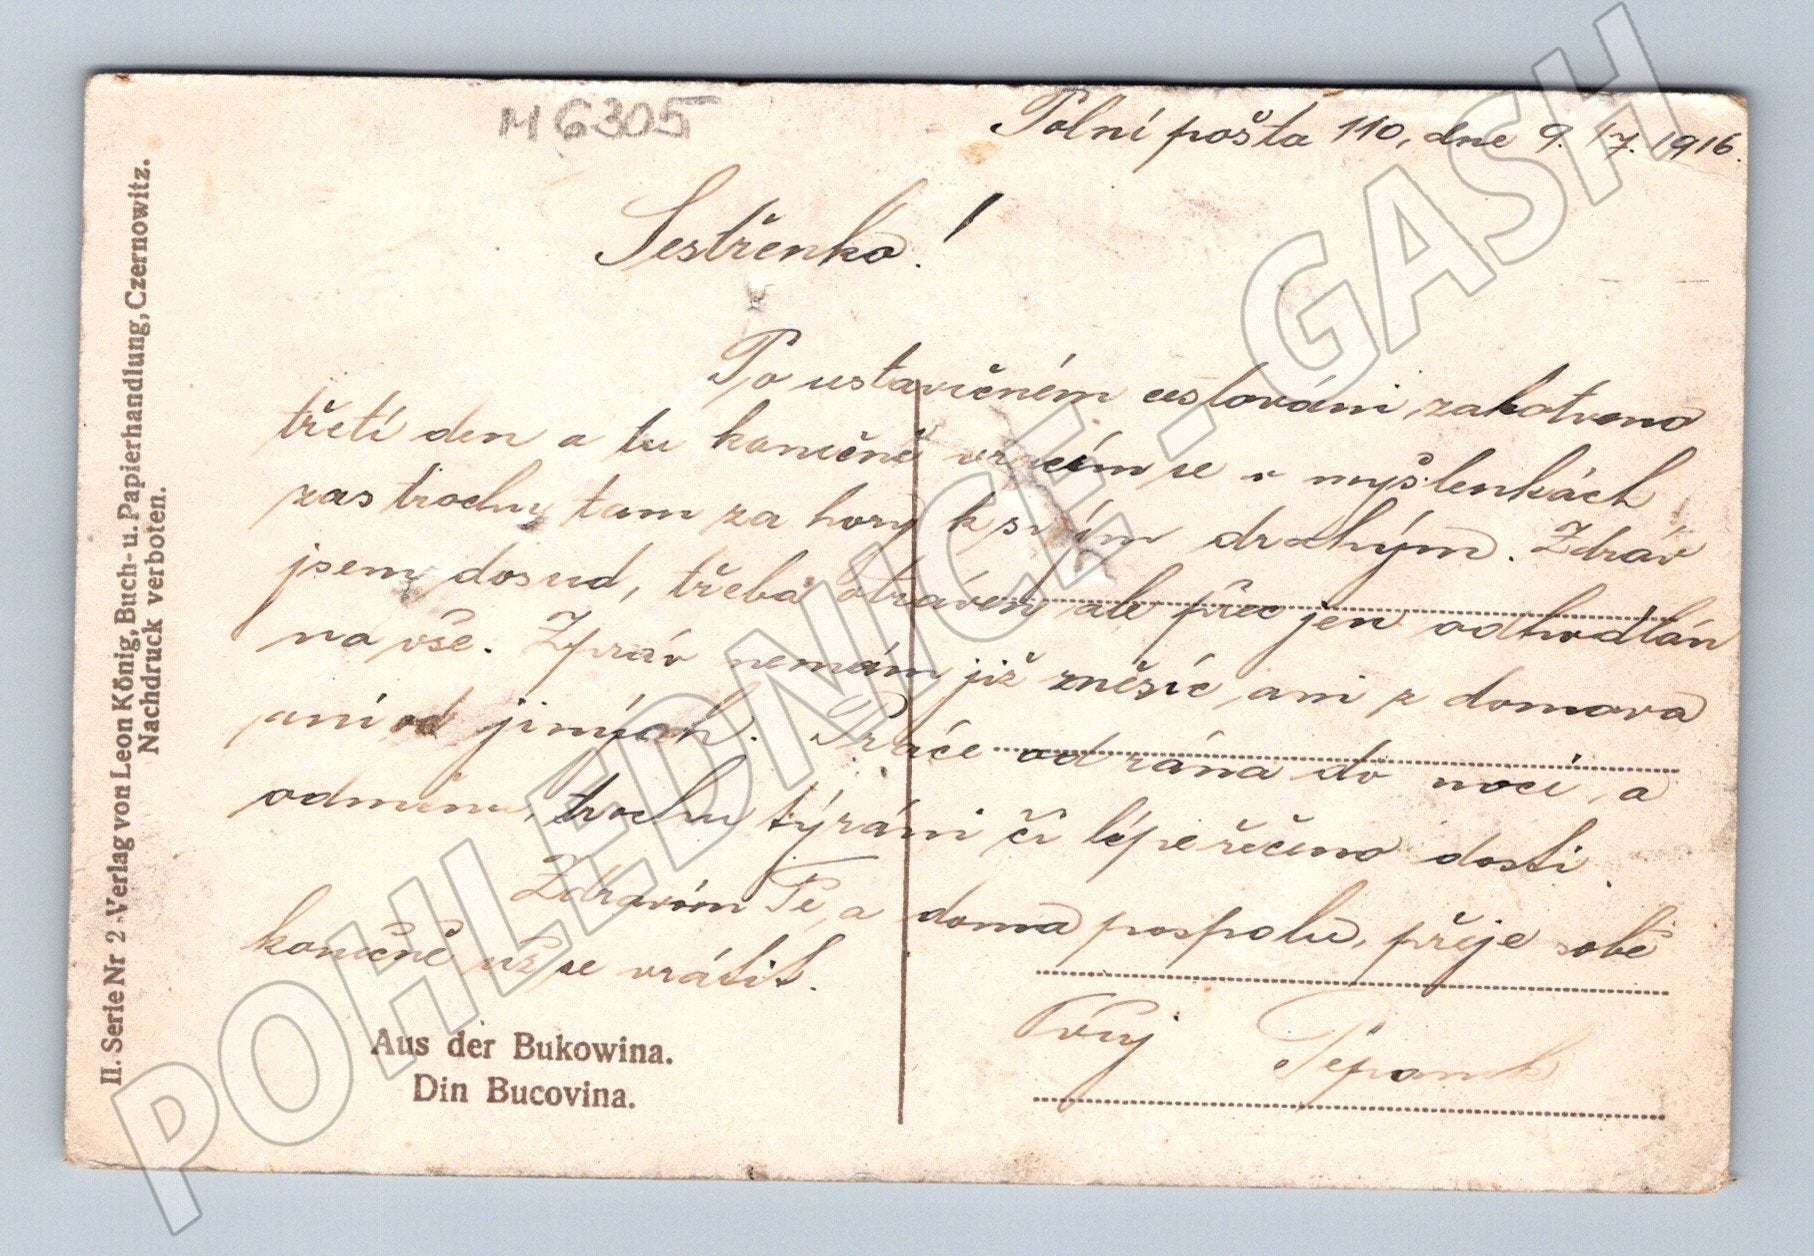 M 6305
Polní pošta 110, dne 9. 17. 1916.
Sestřenko!
Po ustavičném cestování zakotveno
třetí den a tu konečně vracím se v myšlenkách
zas trochu tam za hory k svým drahým. Zdráv
jsem dosud, třeba otráven ale přec jen odhodlán
na vše. Zpráv nemám již měsíc ani z domova
ani od jiných. Práce od rána do noci, a
odměnu, trochu týrání či lépe řečeno dosti.
Zdravím Tě a doma pospolu, přeje sobě
konečně už se vrátit.
Tvůj
Aus der Bukowina.
Din Bucovina.
II. Serie Nr 2-Verlag von Leon König, Buch- u. Papierhandlung, Czernowitz.
Nachdruck verboten.
POHLEDNICE - GASH